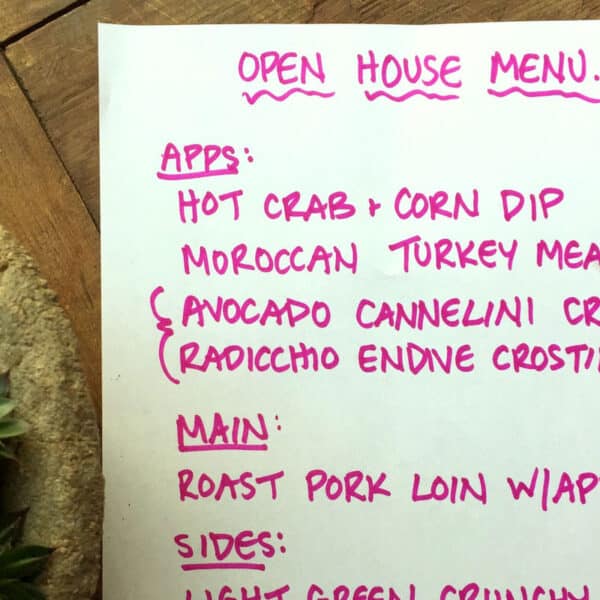 OPEN HOUSE MENU.
APPS:
HOT CRAB + CORN DIP
MOROCCAN TURKEY
AVOCADO CANNELINI
RADICCHIO ENDIVE
MAIN:
ROAST PORK LOIN W/
SIDES:
LIGHT GREEN CRUNCHY